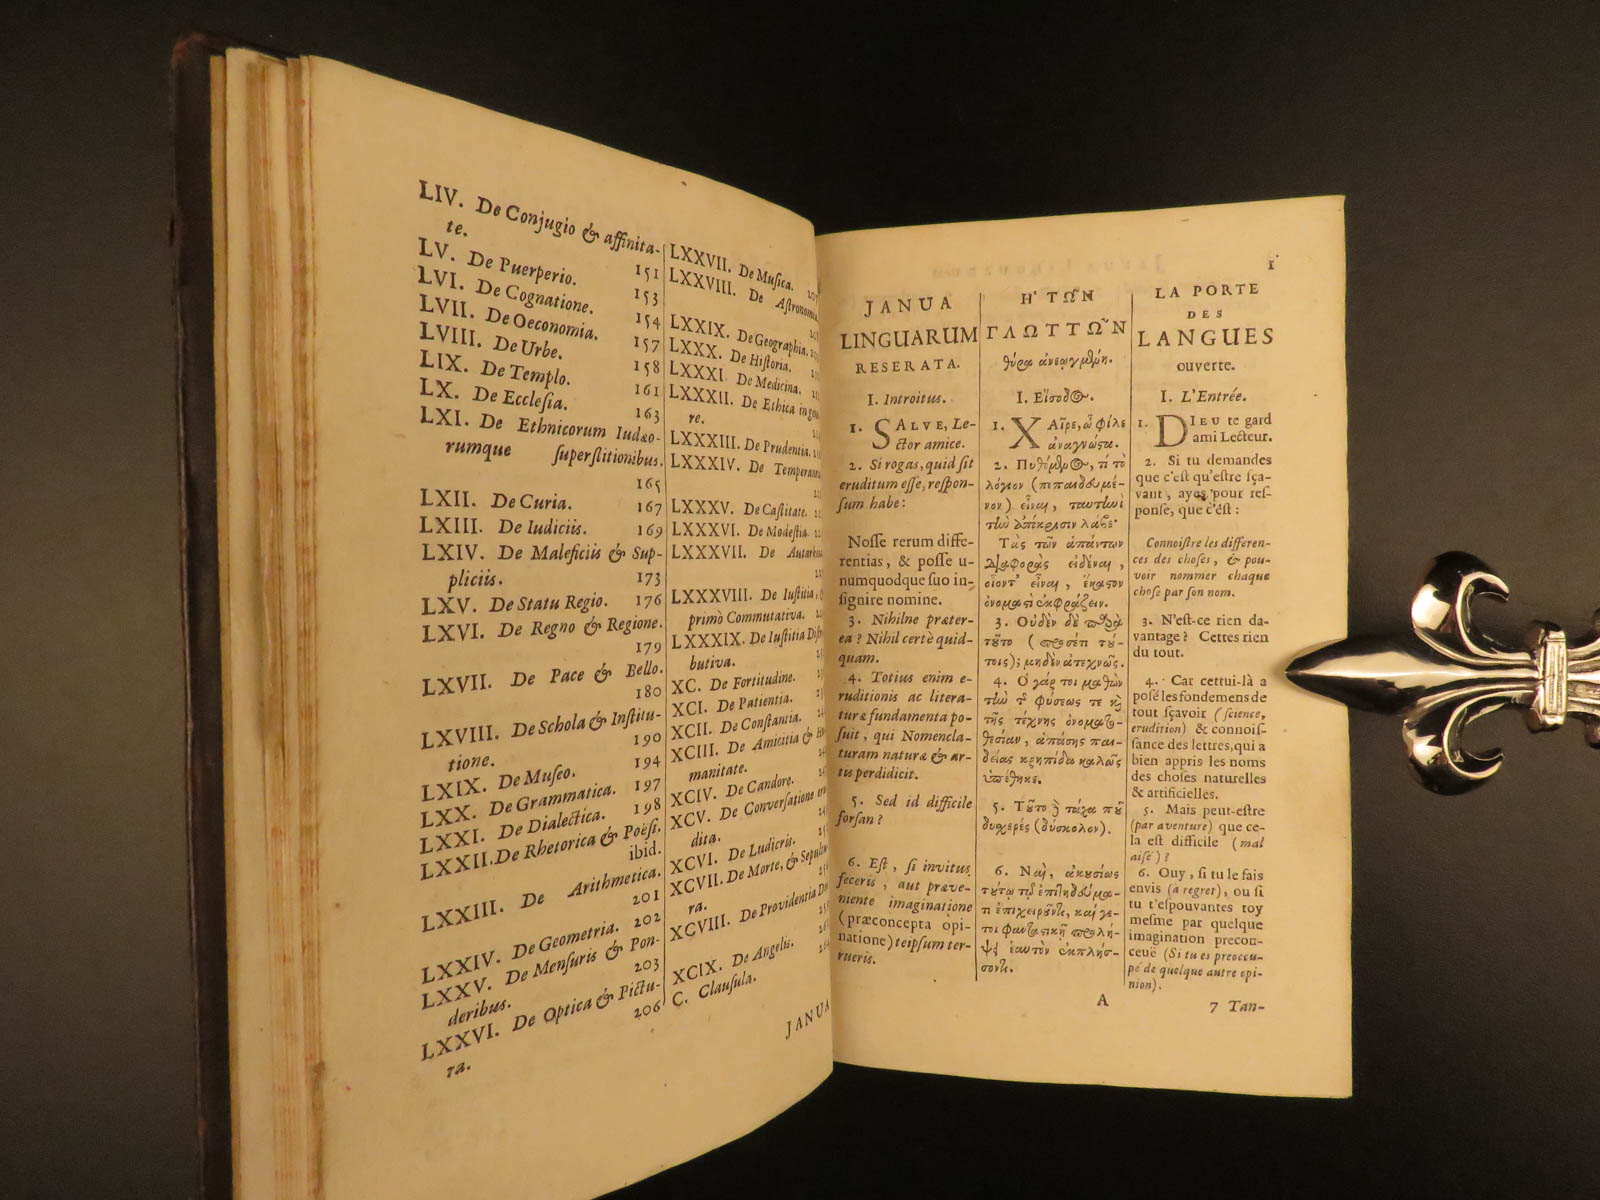 LIV. De Conjugio & affinita-
te. 151
LV. De Puerperio. 153
LVI. De Cognatione. 154
LVII. De Oeconomia. 157
LVIII. De Urbe. 158
LIX. De Templo. 161
LX. De Ecclesia. 163
LXI. De Ethnicorum Iudæo-
rumque superstitionibus.
165
LXII. De Curia. 167
LXIII. De Iudiciis. 169
LXIV. De Maleficiis & Sup-
pliciis. 173
LXV. De Statu Regio. 176
LXVI. De Regno & Regione.
179
LXVII. De Pace & Bello.
180
LXVIII. De Schola & Institu-
tione. 190
LXIX. De Museo. 194
LXX. De Grammatica. 197
LXXI. De Dialectica. 198
LXXII. De Rhetorica & Poësi.
ibid.
LXXIII. De Arithmetica.
201
LXXIV. De Geometria. 202
LXXV. De Mensuris & Pon-
deribus. 203
LXXVI. De Optica & Pictu-
ra. 206
LXXVII. De Musica.
LXXVIII. De Astronomia
LXXIX. De Geographia.
LXXX. De Historia.
LXXXI. De Medicina.
LXXXII. De Ethica in gene
re.
LXXXIII. De Prudentia.
LXXXIV. De Temperan
LXXXV. De Castitate.
LXXXVI. De Modestia.
LXXXVII. De Autark
LXXXVIII. De Iustitia,
primò Commutativa.
LXXXIX. De Iustitia Distri
butiva.
XC. De Fortitudine.
XCI. De Patientia.
XCII. De Constantia.
XCIII. De Amicitia & Hu
manitate.
XCIV. De Candore.
XCV. De Conversatione eru
dita.
XCVI. De Ludicris.
XCVII. De Morte, & Sepultu
ra.
XCVIII. De Providentia Dei
XCIX. De Angelis.
C. Clausula.
JANUA
1
JANUA
LINGUARUM
RESERATA.
I. Introitus.
1. SALVE, Le-
ctor amice.
2. Si rogas, quid sit
eruditum esse, respon-
sum habe:
Nosse rerum diffe-
rentias, & posse u-
numquodque suo in-
signire nomine.
3. Nihilne præter-
ea? Nihil certè quid-
quam.
4. Totius enim e-
ruditionis ac litera-
turæ fundamenta po-
suit, qui Nomencla-
turam naturæ & ar-
tis perdidicit.
5. Sed id difficile
forsan?
6. Est, si invitus
feceris, aut præve-
niente imaginatione
(præconcepta opi-
natione) teipsum ter-
rueris.
Η' ΤΩ͂Ν
ΓΛΩΤΤΩ͂Ν
θύρα ἀνεῳγμένη.
I. Εἴσοδος.
1. ΧΑῖρε, ὦ φίλε
ἀναγνῶστα.
2. Πυθόμενος, τί τὸ
λόγιον (πεπαιδευμέ-
νον) εἶναι, ταυτωὶ
τὼ ἀπόκρισιν λάβε·
Τὰς τῶν ἁπάντων
διαφορὰς εἰδέναι,
οἷοντ' εἶναι, ἕκαστον
ὀνόματι ἐκφράζειν.
3. Οὐδὲν δὲ παρὰ
τοῦτο (προσέτι τού-
τοις); μηδὲν ἀτεχνῶς.
4. Ὁ γάρ τοι μαθὼν
τὼ τ φύσεώς τε καὶ
τῆς τέχνης ὀνομαζο-
θεσίαν, ἁπάσης παι-
δείας κρηπῖδα καλῶς
ὑπέθηκε.
5. Τοῦτο δὲ τάχα που
δυχερές (δύσκολον).
6. Ναὶ, ἀκουσίως
τούτῳ τῷ ἐπιτηδεύμα-
τι ἐπιχειροῦντι, καί γέ-
τοι φανταστικῇ προλή-
ψει ἑαυτὸν ἐκπλήσ-
σοντι.
LA PORTE
DES
LANGUES
ouverte.
I. L'Entrée.
1. DIEU te gard
ami Lecteur.
2. Si tu demandes
que c'est qu'estre sça-
vant, ayes pour res-
ponse, que c'est:
Connoistre les differen-
ces des choses, & pou-
voir nommer chaque
chose par son nom.
3. N'est-ce rien da-
vantage? Cettes rien
du tout.
4. Car cettui-là a
posé les fondemens de
tout sçavoir (science,
erudition) & connois-
sance des lettres, qui a
bien appris les noms
des choses naturelles
& artificielles.
5. Mais peut-estre
(par aventure) que ce-
la est difficile (mal
aisé)?
6. Ouy, si tu le fais
envis (a regret), ou si
tu t'espouvantes toy
mesme par quelque
imagination precon-
ceuë (Si tu es preoccu-
pé de quelque autre opi-
nion).
A
7 Tan-